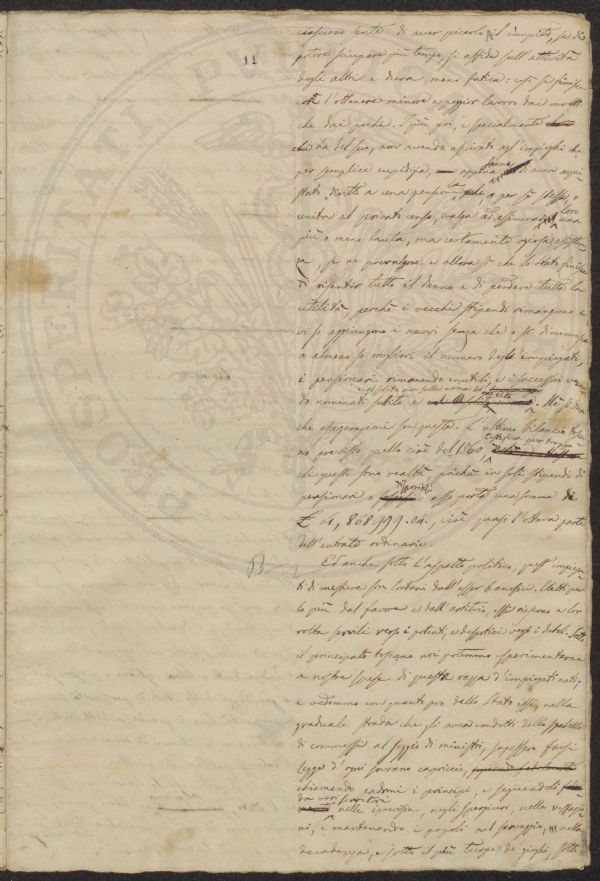 11
ciascuno sente di aver piccolo l'impiego, sa di
potere sciupare più tempo, si affida sull'attività
degli altri e dura meno fatica: così si finisce
con l'ottenere minore e peggior lavoro dai molti
che dai pochi. I più poi, e specialmente
chi ha del suo, non avendo aspirato agl'impieghi che
per semplice cupidigia, appena hanno di aver acqui-
stato diritto a una pensione che, o per sè stessa o
unita al privato censo, valga ad assicurare loro una
più o meno lauta, ma certamente oziosa esisten-
za, se ne prevalgono: e allora sì che lo Stato finisce
di risentir tutto il danno e di perdere tutta la
utilità, perchè i vecchi stipendi rimangono e
vi si aggiungono i nuovi senza che o si diminuisca
o almeno si migliori il numero degli impiegati,
i pensionari rimanendo inutili, e i successori ven-
do nominati subito e
e al solito non sulla norma del merito. Nè si dica
che esagerazioni son queste. L'ultimo bilancio tosca-
no previsto quello cioè del 1860, testifica pur troppo
che queste sono realtà poichè in soli stipendi di
pensionari o esso porta una somma di
£ 4,868,999.04, cioè quasi l'ottava parte
dell'entrate ordinarie.
Ed anche sotto l'aspetto politico, quest'impiega-
ti di mestiere son lontani dall'esser benefici. Eletti per
lo più dal favore e dall'arbitrio, essi riescono a lor
volta servili verso i potenti, e despotici verso i deboli. Sotto
il principato toscano noi potemmo esperimentare
a nostre spese di questa razza d'impiegati nati;
e vedemmo con quanto pro dello Stato essi, nella
graduale strada che gli avea condotti dallo sgabello
di commessi al seggio di ministri, sapessero farsi
legge d'ogni sovrano capriccio,
chiamando padroni i principi, e seguendoli
da veri servitori
nelle ipocrisie, negli spergiuri, nelle vessazio-
ni, e mantenendo i popoli nel servaggio, nella
decadenza, e sotto il più turpe de' gioghi, sotto